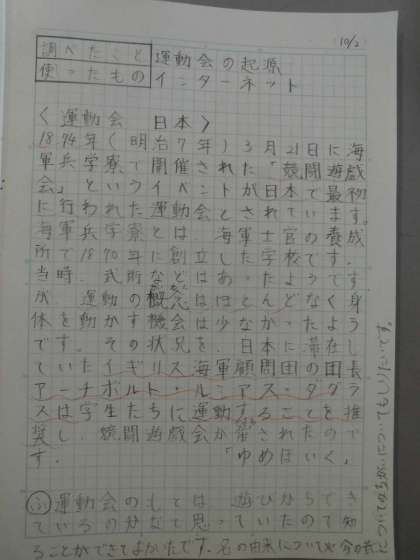 10/2
調べたこと 運動会の起源
使ったもの インターネット
〈運動会 日本〉
1874年(明治7年)3月21日に海
軍兵学寮で開催された「競闘遊戯
会」というイベントが日本で最初
に行われた運動会とされています。
海軍兵学寮とは 海軍士官の養成
所で1870年に創立した学校です。
当時、武術などはあったようです
が、運動の概念はほとんどなく身
体を動かす機会は少なかったよう
です。その状況を 日本に滞在し
ていたイギリス海軍顧問団の団長
アーチボルト・ルシアス・ダグラ
スは学生たちに運動することを推
奨し、競闘遊戯会が催されたので
す。 「ゆめほいく」
ふ運動会のもとは 遊びからでき
ているのかなと思っていたので知
ることができてよかたです。名の由来について
についてもしりたいです。